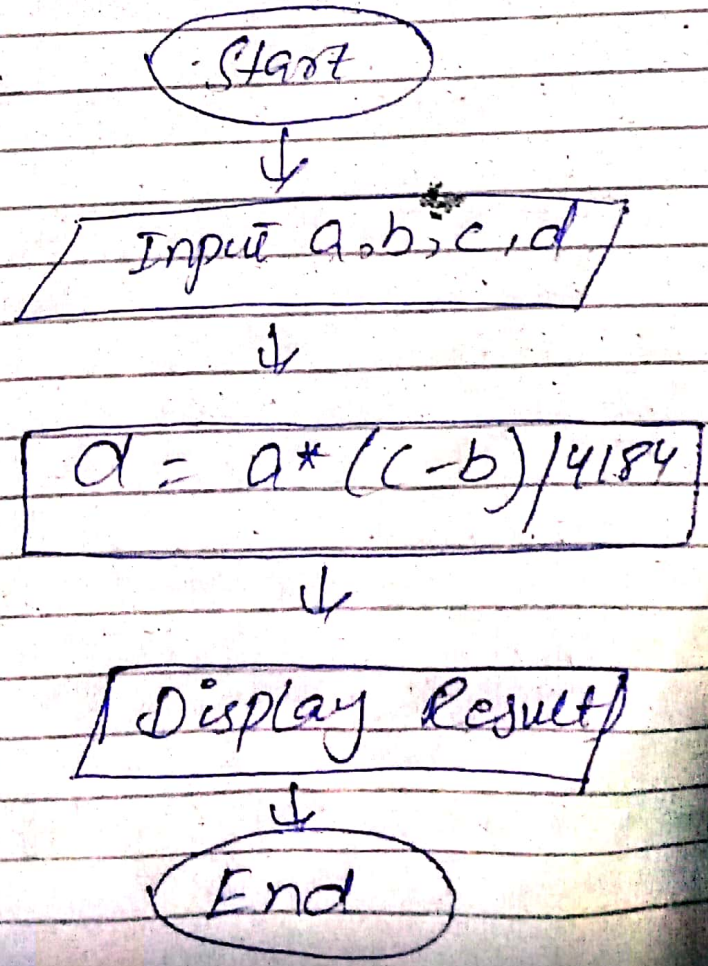 Start
Input a,b,c,d
d = a*(c-b)/4184
Display Result
End